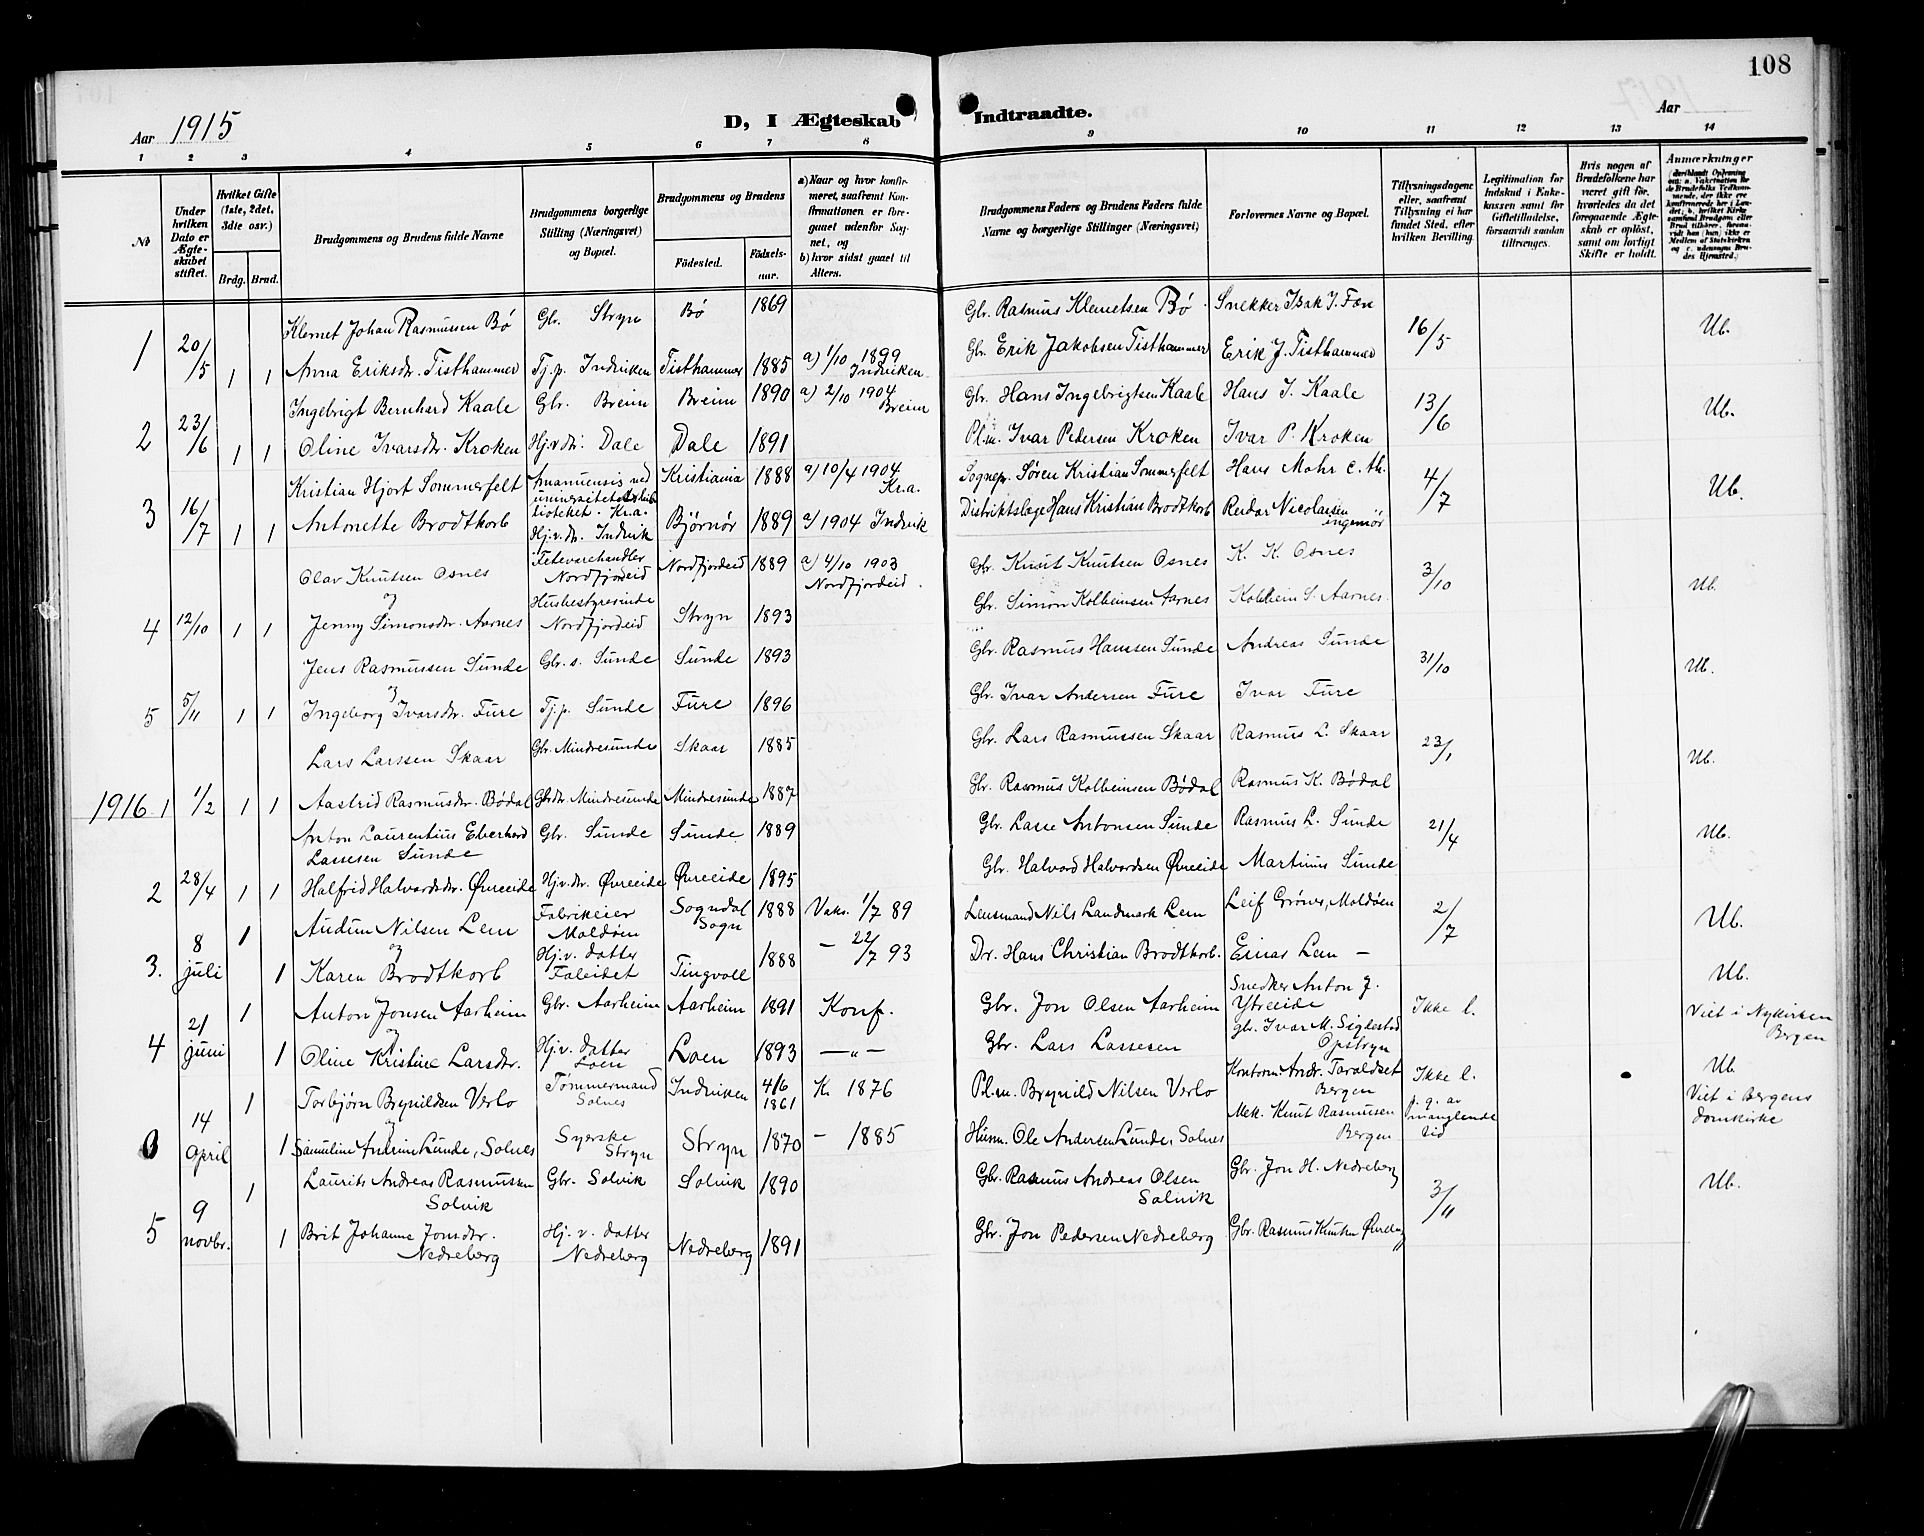 108
Aar 1915
D, I Ægteskab Indtraadte.
Aar
1 2 3 4 5 6 7 8 9 10 11 12 13 14
No
Under hvilken Dato er Ægteskabet stiftet.
Hvilket Gifte (1ste, 2det, 3die osv.)
Brdg. Brud.
Brudgommens og Brudens fulde Navne
Brudgommens borgerlige Stilling (Næringsvei) og Bopæl.
Brudgommens og Brudens
Födested.
Födselsaar.
a) Naar og hvor konfirmeret, saafremt Konfirmationen er foregaaet udenfor Sognet, og
b) hvor sidst gaaet til Alters.
Brudgommens Faders og Brudens Faders fulde Navne og borgerlige Stillinger (Næringsvei)
Forlovernes Navne og Bopæl.
Tillysningsdagene eller, saafremt Tillysning ei har fundet Sted, efter hvilken Bevilling.
Legitimation for Indskud i Enkekassen samt for Giftetilladelse, forsaavidt saadan tiltrænges.
Hvis nogen af Brudefolkene har været gift för, hvorledes da det foregaaende Ægteskab er oplöst, samt om lovligt Skifte er holdt.
Anmærkninger
1 20/5 1 1
Klemet Johan Rasmussen Bö Gbr. Stryn Bö 1869 Gbr. Rasmus Klemetsen Bö Snekker Isak J. Fæn 16/5 Ub.
Anna Eriksdr. Tisthammer Tj.p. Indviken Tisthammer 1885 a) 1/10 1899 Indviken Gbr. Erik Jakobsen Tisthammer Erik J. Tisthammer
2 23/6 1 1
Ingebrigt Bernhard Kaale Gbr. Breim Breim 1890 a) 2/10 1904 Breim Gbr. Hans Ingebrigtsen Kaale Hans I. Kaale 13/6 Ub.
Oline Ivarsdr. Kroken Hj.v.dtr. Dale Dale 1891 Pl.m. Ivar Pedersen Kroken Ivar P. Kroken
3 16/7 1 1
Kristian Hjort Sommerfelt Amanuensis ved universitetsbiblioteket. Kr.a. Kristiania 1888 a) 10/4 1904 Kr.a. Sognepr. Sören Kristian Sommerfelt Hans Mohr c. th. 4/7 Ub.
Antonette Brodtkorb Hj.v.dr. Indvik Bjørnør 1889 a/ 1904 Indvik Distriktslæge Hans Kristian Brodtkorb Reidar Nicolaisen ingeniør
4 12/10 1 1
Olav Knutsen Osnes Fetevarehandler Nordfjordeid Nordfjordeid 1889 a) 4/10 1903 Nordfjordeid. Gbr. Knut Knutsen Osnes K. K. Osnes 3/10 Ub.
og
Jenny Simonsdr. Aarnes Husbestyrerinde Nordfjordeid Stryn 1893 Gbr. Simon Kolbeinsen Aarnes Kolbein S. Aarnes
5 5/11 1 1
Jens Rasmussen Sunde Gbr. s. Sunde Sunde 1893 Gbr. Rasmus Hanssen Sunde Andreas Sunde 31/10 Ub.
og
Ingeborg Ivarsdr. Fure Tj.p. Sunde Fure 1896 Gbr. Ivar Andersen Fure Ivar Fure
1916 1 1/2 1 1
Lars Larssen Skaar Gbr. Mindresunde Skaar 1885 Gbr. Lars Rasmussen Skaar Rasmus L. Skaar 23/1 Ub.
Aastrid Rasmusdr. Bødal Gbrdtr. Mindresunde Mindresunde 1887 Gbr. Rasmus Kolbeinsen Bødal Rasmus K. Bødal
2 28/4 1 1
Anton Laurentius Eberhard Lassesen Sunde Gbr. Sunde Sunde 1889 Gbr. Lasse Antonsen Sunde Rasmus L. Sunde 21/4 Ub.
Halfrid Halvardsdr. Øvreeide Hj.v.dr. Øvreeide Øvreeide 1895 Gbr. Halvard Halvardsen Øvreeide Martinus Sunde
3. 8 juli 1 1
Audun Nilsen Lem Fabrikeier Moldöen Sogndal Sogn 1888 Vaks. 1/7 89 Lensmand Nils Landmark Lem Leif Gröner, Moldöen 2/7 Ub.
og
Karen Brodtkorb Hj.v. datter Faleidet Tingvoll 1888 — 22/7 93 Dr. Hans Christian Brodtkorb. Einar Lem — Ub.
4 21 juni 1 1
Anton Jonsen Aarheim Gbr. Aarheim Aarheim 1891 Konf. Gbr. Jon Olsen Aarheim Snedker Anton J. Ytreeide Ikke l. Viet i Nykirken Bergen
og
Oline Kristine Larsdr. Hj.v. datter Loen Loen 1893 —„— Gbr. Lars Lassesen gbr. Ivar M. Sigdestad Opstryn
14 april 1 1
Torbjørn Brynildsen Verlo Tømmermand Solnes Indviken 4/6 1861 K. 1876 Pl.m. Brynild Nilsen Verlo Kontorm. Andr. Taraldset Bergen Ikke l. p. g. av manglende tid Ub Viet i Bergens domkirke
og
Samuline Andrine Lunde, Solnes Syerske Stryn Stryn 1870 — 1885 Husm. Ole Andersen Lunde, Solnes Mek. Knut Rasmussen Bergen
5 9 novbr. 1 1
Laurits Andreas Rasmussen Solvik Gbr. Solvik Solvik 1890 Gbr. Rasmus Andreas Olsen Solvik Gbr. Jon H. Nedreberg 3/11 Ub.
Brit Johanne Jonsdtr. Nedreberg Hj. v. datter Nedreberg Nedreberg 1891 Gbr. Jon Pedersen Nedreberg Gbr. Rasmus Knutsen